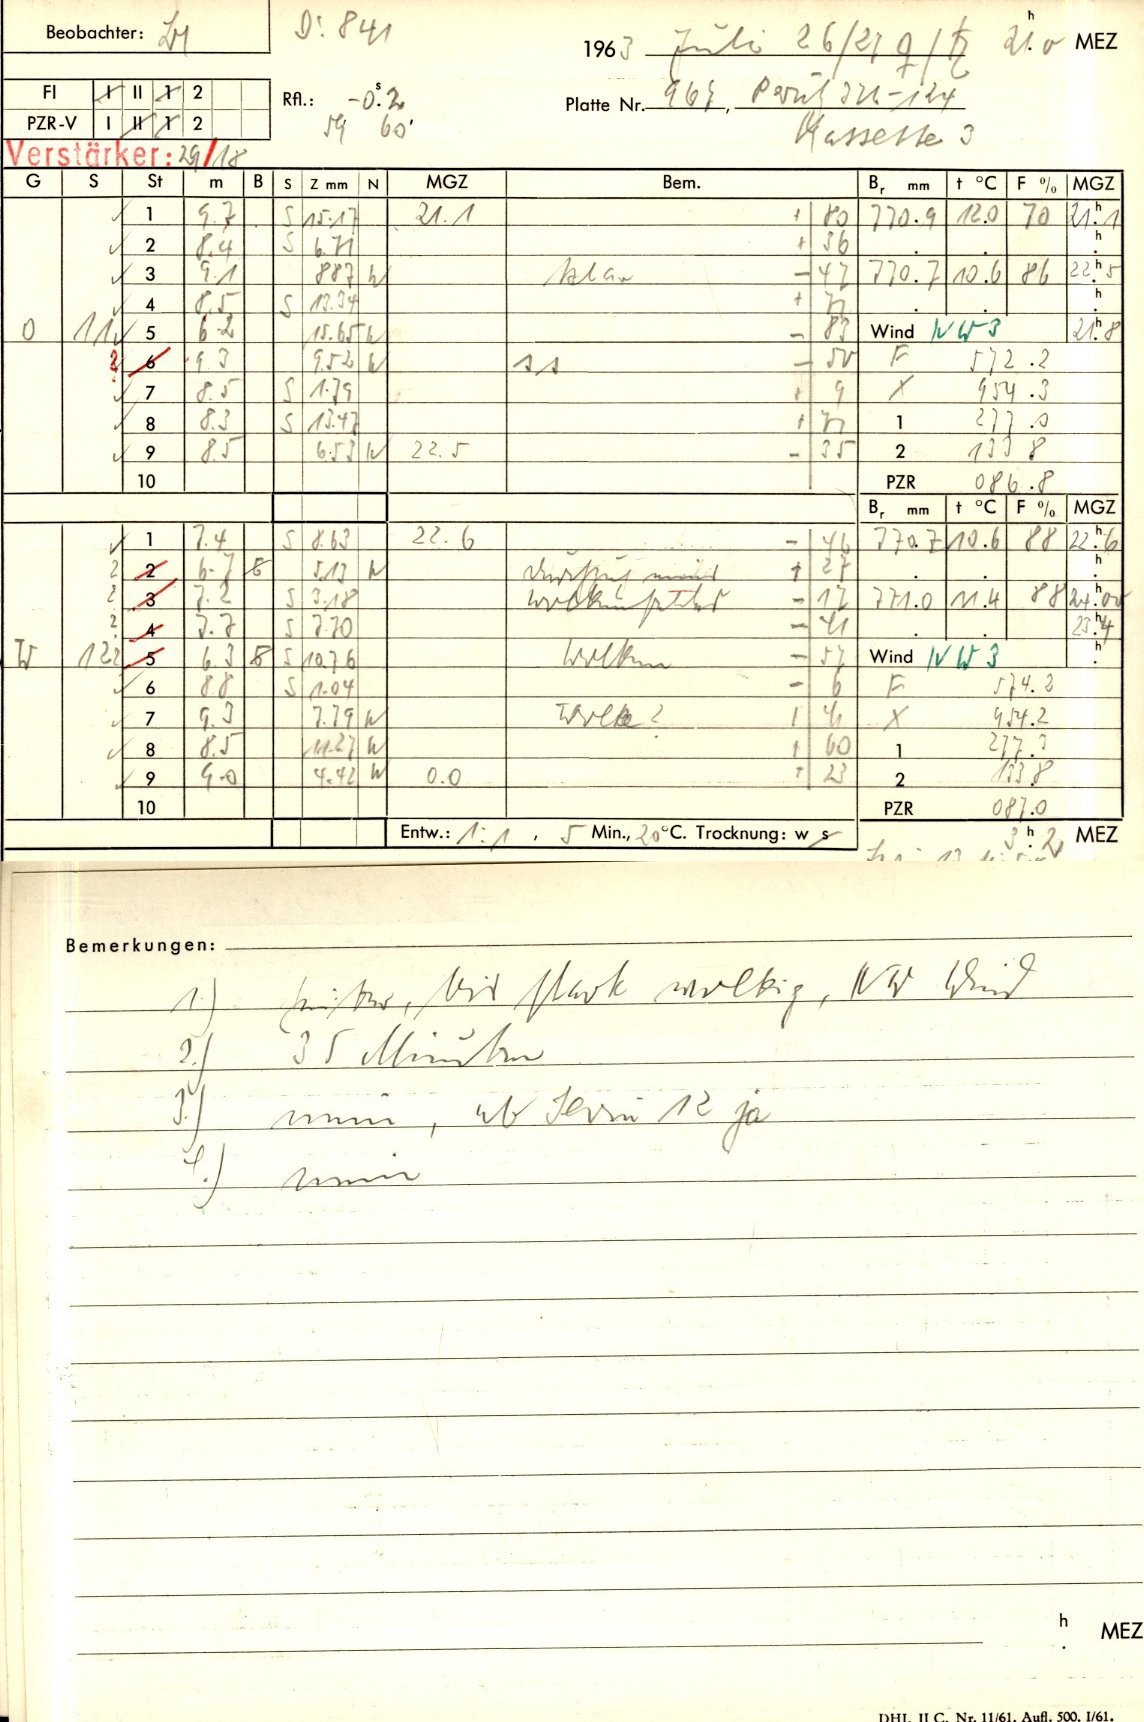 Beobachter:
D: 841
1963 Juli 26/27 ♀/♄ 21h.0 MEZ
FI I II 1 2
Rfl.: -0s.2
Platte Nr. , Perutz
PZR-V I II 1 2
59 60
Kassette 3
Verstärker: 29/18
G S St m B S Z mm N MGZ Bem. Br mm t °C F % MGZ
1 9.7 S 15.17 21.1 + 80 770.9 12.0 70 21h.1
2 8.4 S 6.71 + 36 . . h.
3 9.1 8.87 W blau - 47 770.7 10.6 86 22h.5
4 8.5 S 13.34 + 71 . . h.
O 11 5 6.2 15.65 W - 83 Wind NW 3 21h.8
? 6 9.3 9.52 W ss - 50 F 572.2
7 8.5 S 1.79 + 9 X 954.3
8 8.3 S 13.47 + 71 1 277.0
9 8.5 6.53 W 22.5 - 35 2 133.8
10 PZR 086.8
Br mm t °C F % MGZ
1 7.4 S 8.63 22.6 - 46 770.7 10.6 88 22h.6
? 2 6.7 B 5.13 W + 27 . . h.
? 3 7.2 S 3.18 - 17 771.0 11.4 88 24h.00
? 4 7.7 S 7.70 - 41 . . 23h.4
W 12 ? 5 6.3 B S 10.76 Wolken - 57 Wind NW 3 h.
6 8.8 S 1.04 - 6 F 574.2
7 9.3 7.79 W Wolke? + 41 X 954.2
8 8.5 11.27 W + 60 1 277.3
9 9.0 4.42 W 0.0 + 23 2 133.8
10 PZR 087.0
Entw.: 1:1 , 5 Min., 20°C. Trocknung: w s 3h.2 MEZ
Bemerkungen:
1.) heiter, bis stark wolkig, NW Wind
2.) 35 Minuten
3.) nein, ab Serie 12 ja
4.) nein
h. MEZ
DHI. II C. Nr. 11/61. Aufl. 500. I/61.